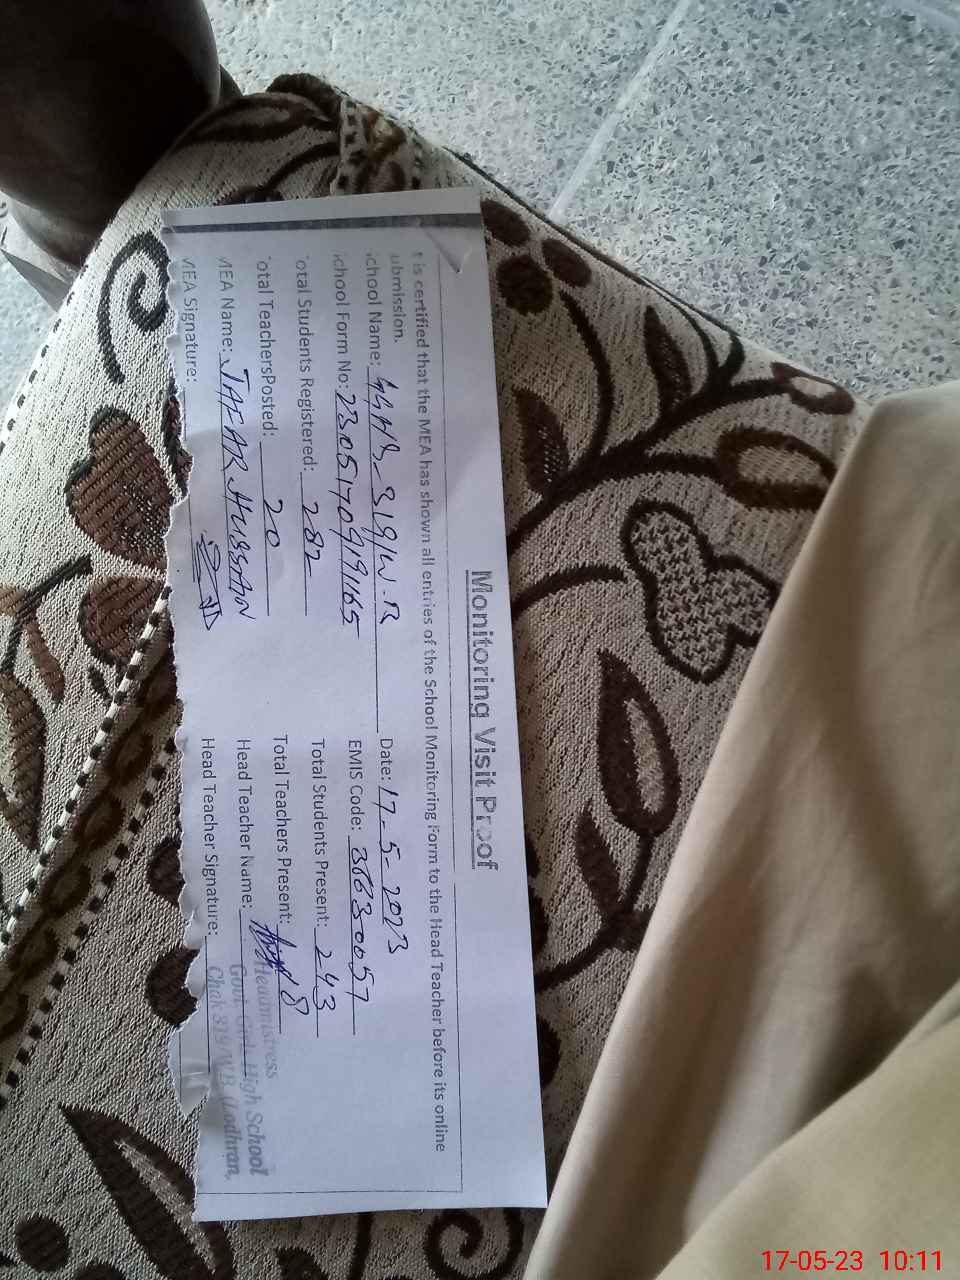 Monitoring Visit Proof
t is certified that the MEA has shown all entries of the School Monitoring Form to the Head Teacher before its online
ubmission.
chool Name: GGHS_319/W.B Date: 17-5-2023
chool Form No: 23051709191165 EMIS Code: 36630057
otal Students Registered: 282 Total Students Present: 243
otal TeachersPosted: 20 Total Teachers Present: 18
MEA Name: JAFAR HUSSAN Head Teacher Name:
MEA Signature: Head Teacher Signature:
Headmistress
Govt. Girls High School
Chak 319/W.B (Lodhran)
17-05-23 10:11